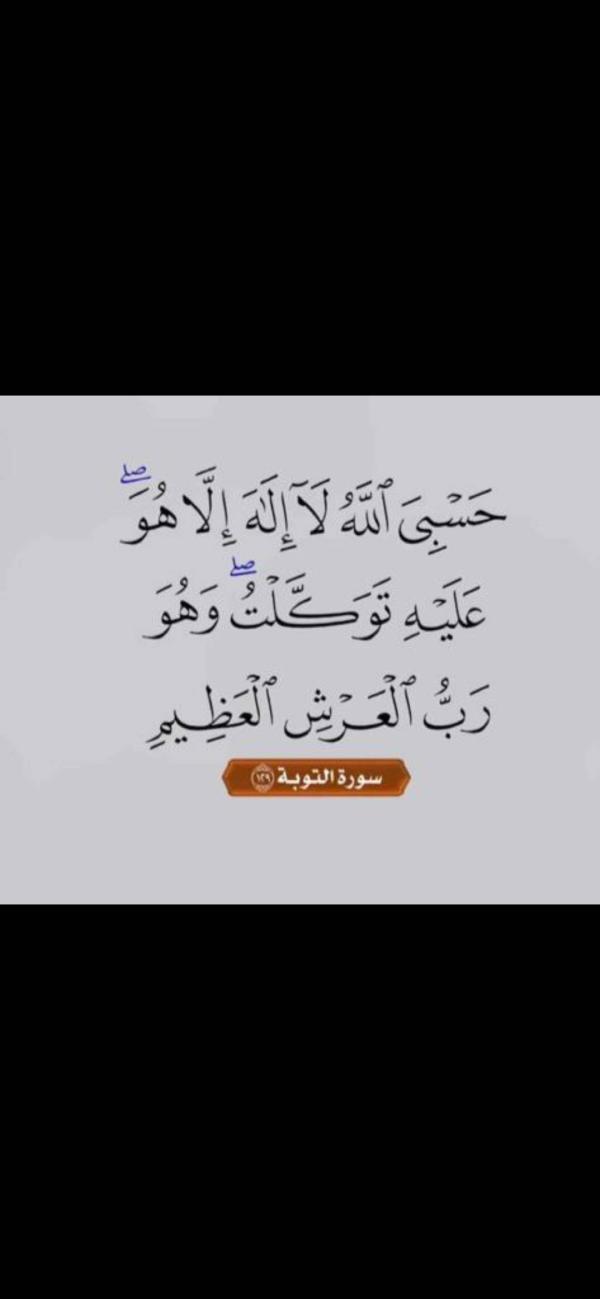 حَسْبِىَ ٱللَّهُ لَآ إِلَٰهَ إِلَّا هُوَۖ
عَلَيْهِ تَوَكَّلْتُۖ وَهُوَ
رَبُّ ٱلْعَرْشِ ٱلْعَظِيمِ
سورة التوبة ١٢٩